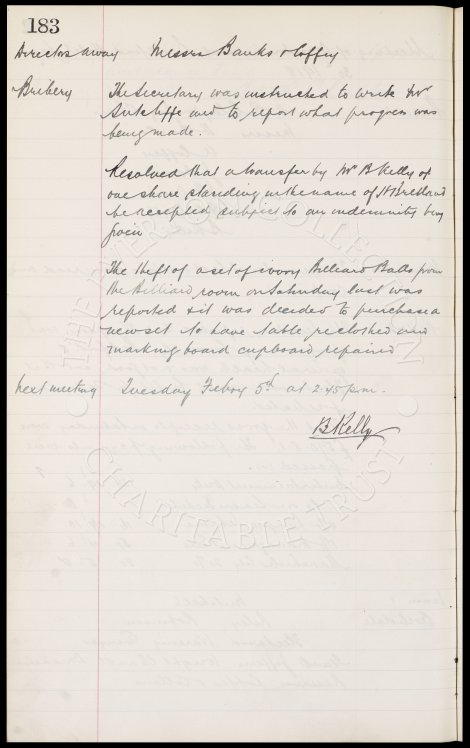 183
Directors away Messrs Banks & Coffey
Bribery The Secretary was instructed to write Mr
Sutcliffe and to report what progress was
being made.
Resolved that a transfer by Mr B Kelly of
one share standing in the name of H Bretland
be accepted subject to an indemnity being
given
The theft of a set of ivory Billiard Balls from
the Billiard room on Saturday last was
reported & it was decided to purchase a
new set to have table reclothed and
marking board cupboard repaired
Next meeting Tuesday Febry 5th at 2.45 p.m.
B Kelly
CHARITABLE TRUST
COLLECTION